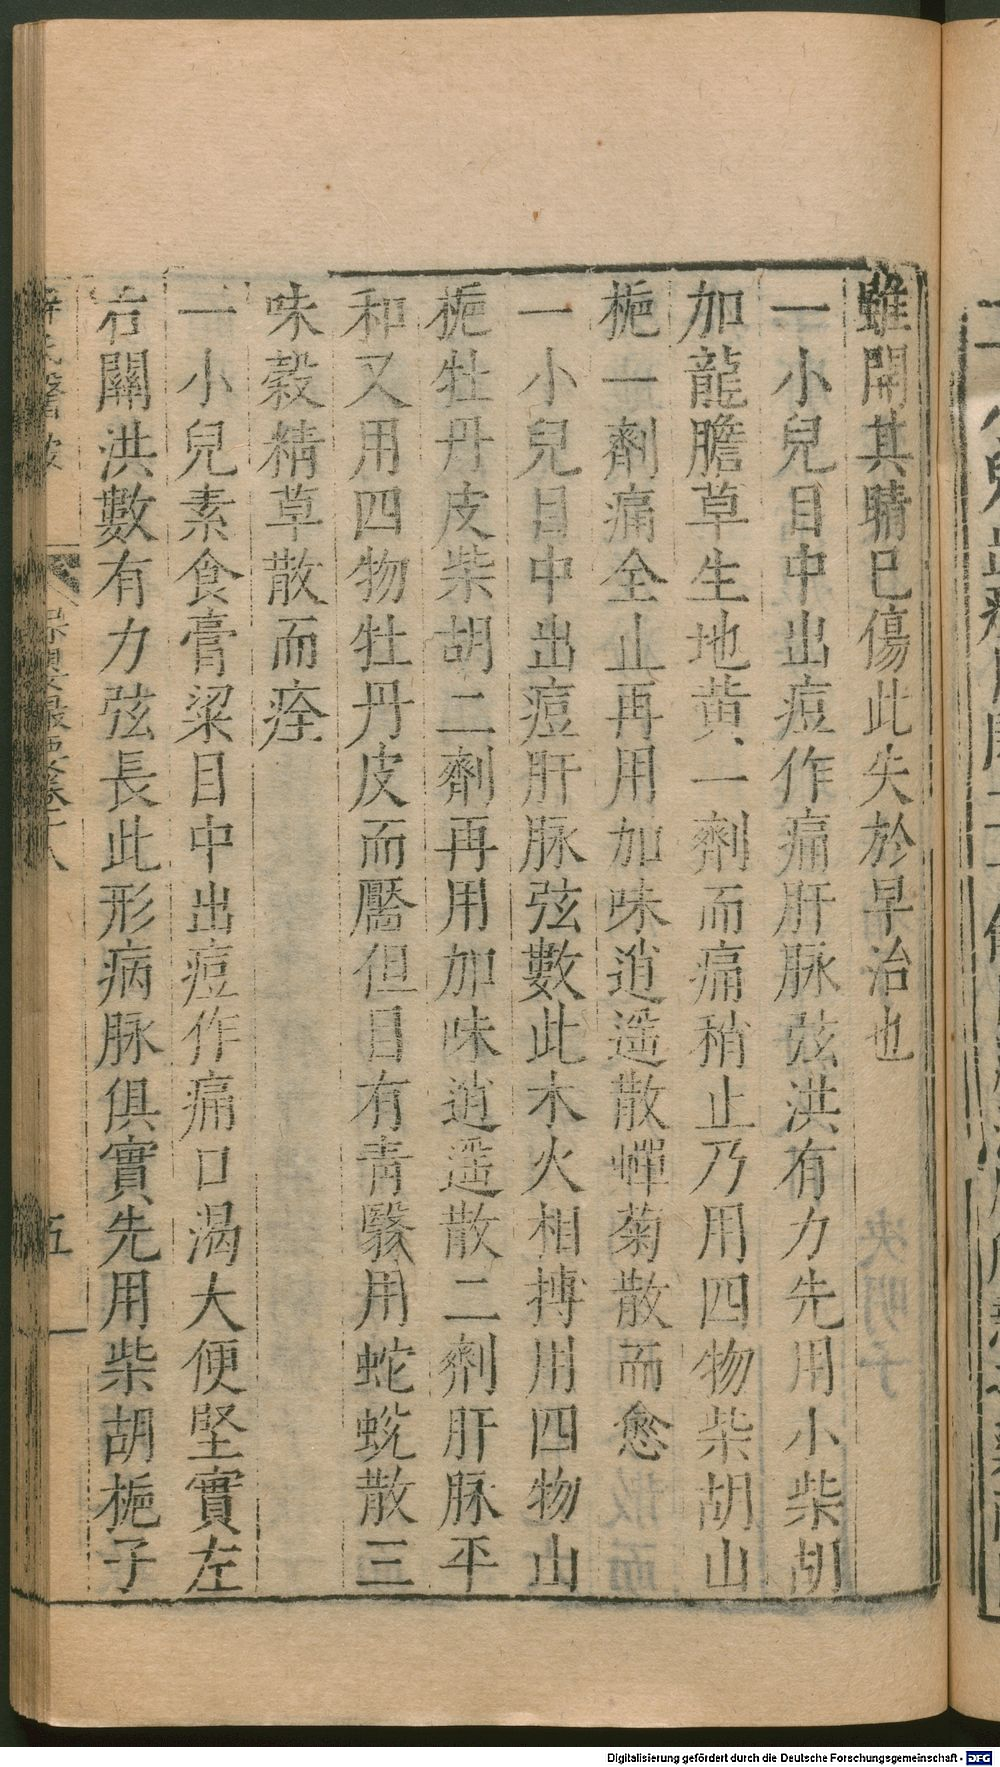 雖開其睛巳傷此失於早治也
一小兒目中出痘作痛肝脉弦洪有力先用小柴胡
加龍膽草生地黄一劑而痛稍止乃用四物柴胡山
梔一劑痛全止再用加味逍遥散蟬菊散而愈
一小兒目中出痘肝脉弦數此木火相搏用四物山
梔牡丹皮柴胡二劑再用加味逍遥散二劑肝脉平
和又用四物牡丹皮而靨但目有青翳用蛇蛻散三
味穀精草散而痊
一小兒素食膏粱目中出痘作痛口渴大便堅實左
右關洪數有力弦長此形病脉俱實先用柴胡梔子
五
Digitalisierung gefördert durch die Deutsche Forschungsgemeinschaft - DFG